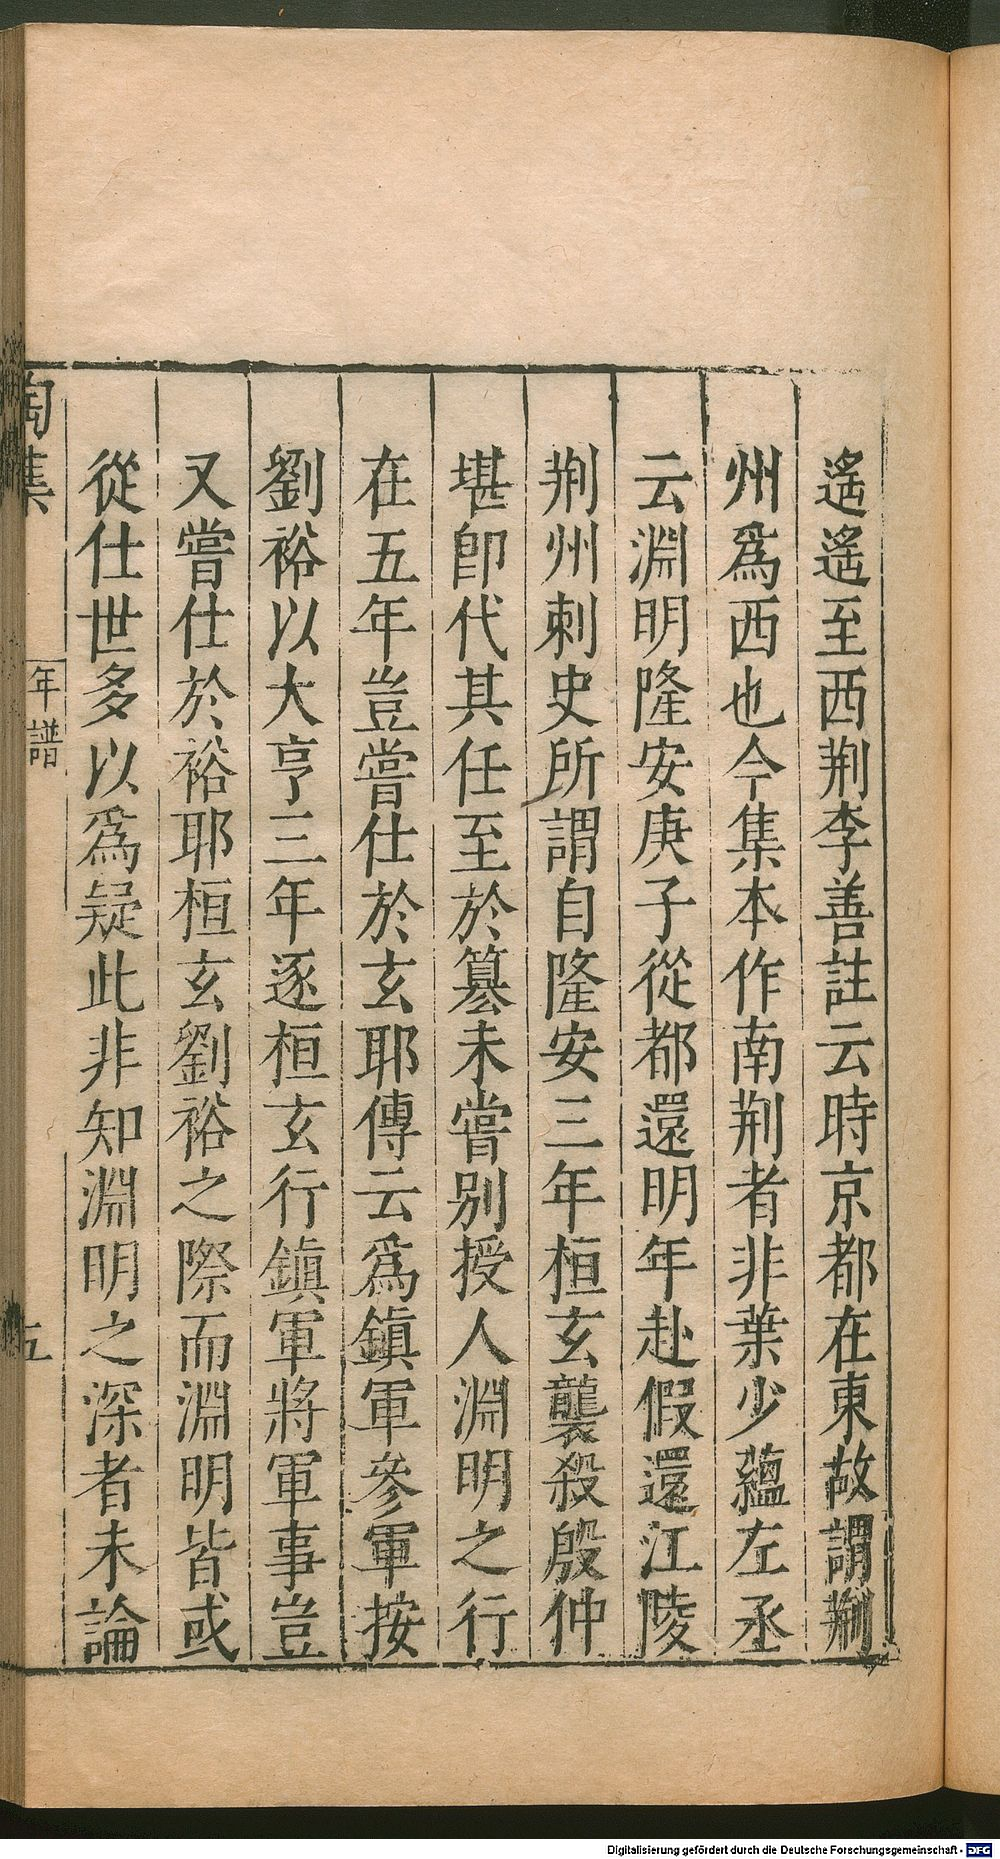 遙遙至西荆李善註云時京都在東故謂荆
州爲西也今集本作南荆者非葉少蘊左丞
云淵明隆安庚子從都還明年赴假還江陵
荆州刺史所謂自隆安三年桓玄襲殺殷仲
堪卽代其任至於簒未嘗别授人淵明之行
在五年豈嘗仕於玄耶傳云爲鎭軍參軍按
劉裕以大亨三年逐桓玄行鎭軍將軍事豈
又嘗仕於裕耶桓玄劉裕之際而淵明皆或
從仕世多以爲疑此非知淵明之深者未論
陶集
年譜
五
Digitalisierung gefördert durch die Deutsche Forschungsgemeinschaft - DFG